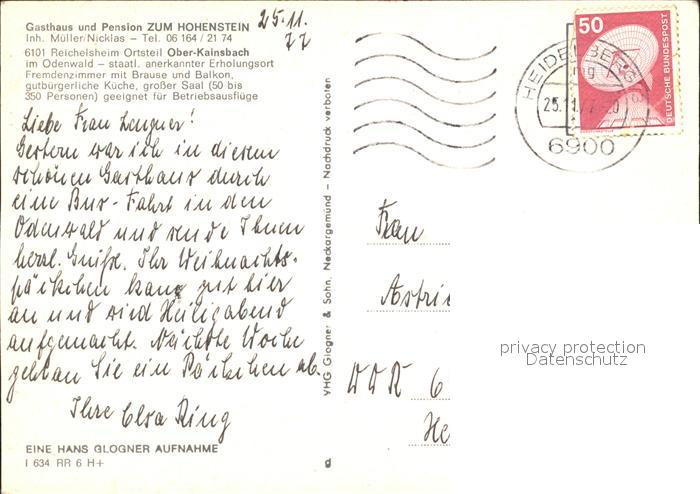 Gasthaus und Pension ZUM HOHENSTEIN
Inh. Müller/Nicklas – Tel. 06 164 / 21 74
6101 Reichelsheim Ortsteil Ober-Kainsbach
im Odenwald – staatl. anerkannter Erholungsort
Fremdenzimmer mit Brause und Balkon,
gutbürgerliche Küche, großer Saal (50 bis
350 Personen) geeignet für Betriebsausflüge
25.11.
77
Liebe Frau Langner!
Gestern war ich in diesem
schönen Gasthaus durch
eine Bus-Fahrt in den
Odenwald und sende Ihnen
herzl. Grüße. Ihr Weihnachts-
päckchen kam gut hier
an und wird Heiligabend
aufgemacht. Nächste Woche
geht an Sie ein Päckchen ab.
Ihre Elsa Ring
EINE HANS GLOGNER AUFNAHME
I 634 RR 6 H+
VHG Glogner & Sohn, Neckargemünd – Nachdruck verboten
g
50
DEUTSCHE BUNDESPOST
HEIDELBERG
mg
25.11.77-20
6900
Frau
Astri
DDR 6
He
privacy protection
Datenschutz